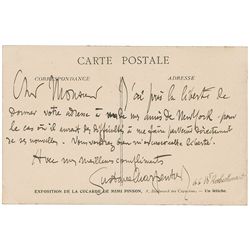 CARTE POSTALE
CORRESPONDANCE ADRESSE
Cher Monsieur J'ai pris la liberté de
donner votre adresse à un de mes amis de New York pour
le cas où il aurait des difficultés à me faire parvenir directement
de ses nouvelles. Vous voudrez bien m'excuser cette liberté.
Avec mes meilleurs compliments
Gustave Charpentier
66 Bd Rochechouart
EXPOSITION DE LA COCARDE DE MIMI PINSON, Boulevard des Capucines. - Un fétiche.